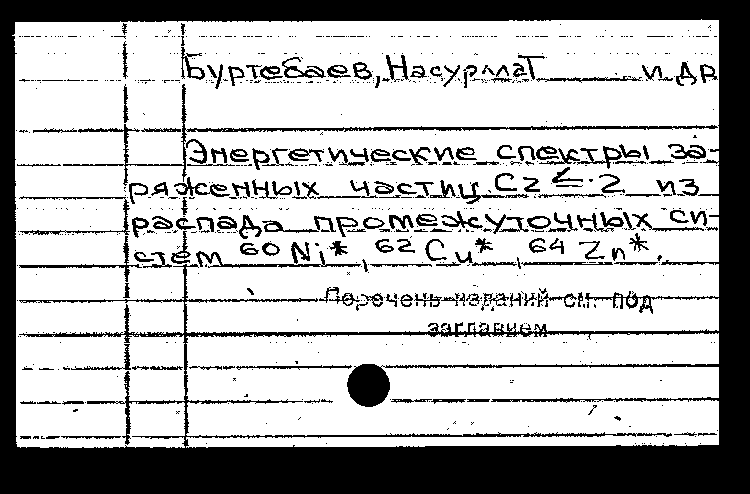 Буртебаев, Насурлла Т и др
Энергетические спектры за-
ряженных частиц Cz ≤ 2 из
распада промежуточных си-
стем ⁶⁰Ni*, ⁶²Cu*, ⁶⁴Zn*.
Перечень изданий см. под
заглавием